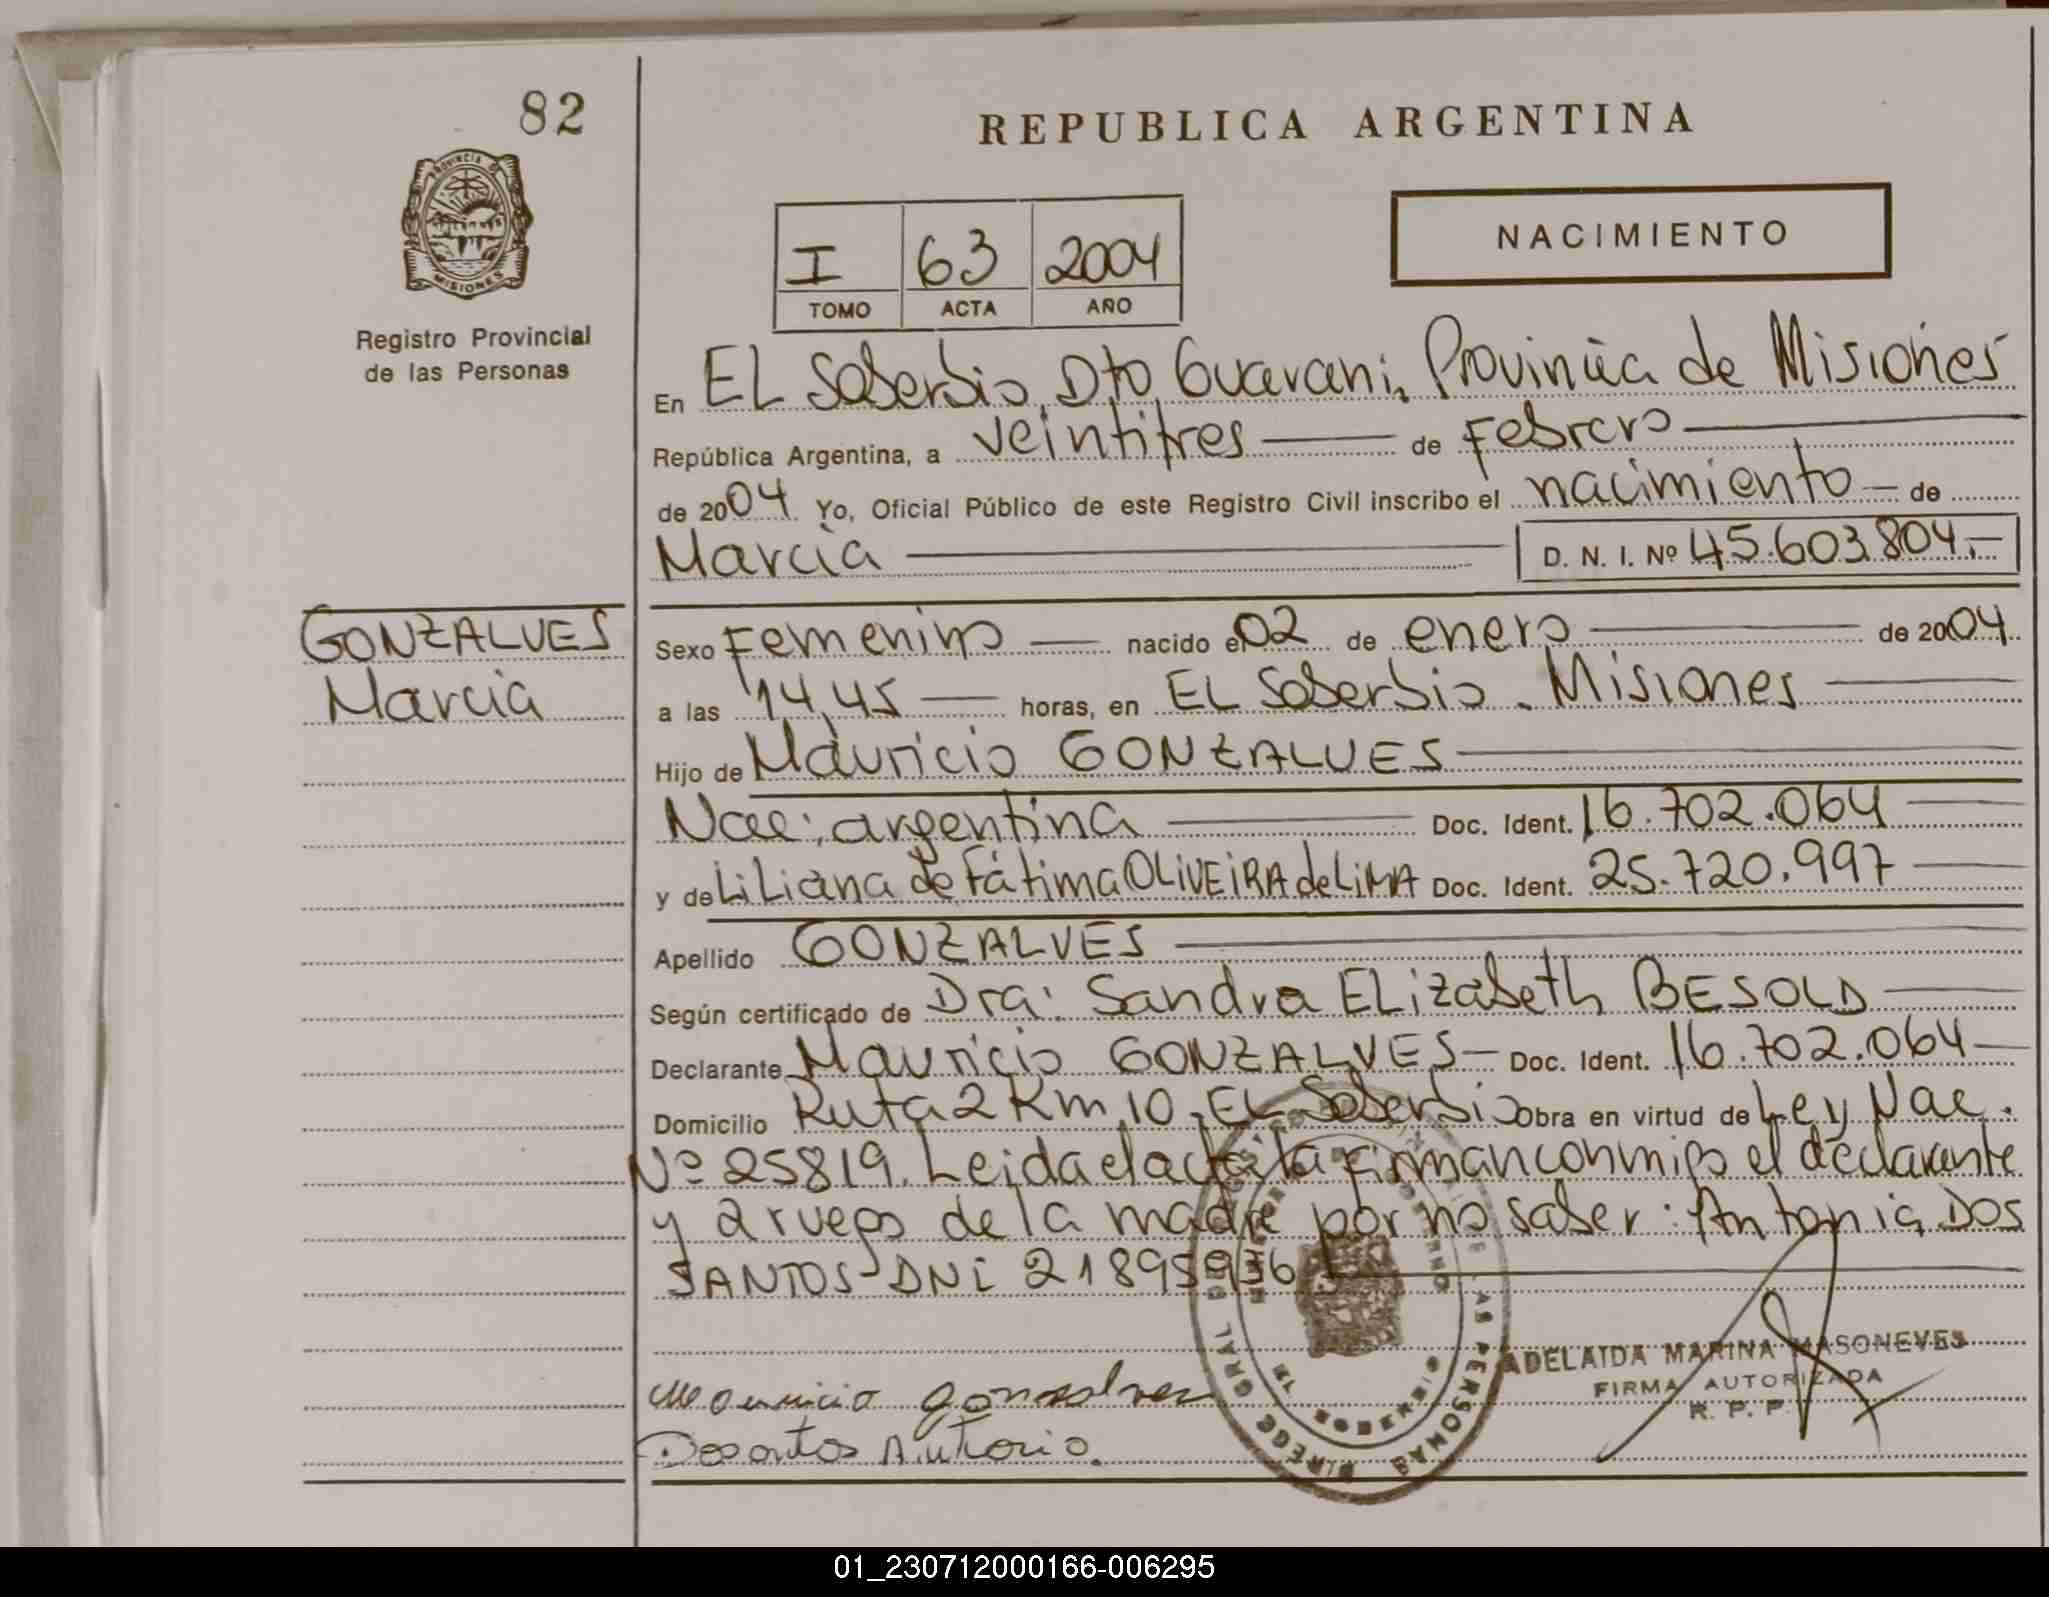 82
REPUBLICA ARGENTINA
PROVINCIA DE
MISIONES
Registro Provincial
de las Personas
I 63 2004
TOMO ACTA AÑO
NACIMIENTO
En EL Soberbio, Dto Guarani, Provincia de Misiones
República Argentina, a veintitres de Febrero
de 2004 Yo, Oficial Público de este Registro Civil inscribo el nacimiento de
Marcia D. N. I. Nº 45.603.804.-
GONZALVES
Marcia
Sexo Femenino nacido el 02 de enero de 2004
a las 14,45 horas, en EL Soberbio. Misiones
Hijo de Mauricio GONZALVES
Nac: argentina Doc. Ident. 16.702.064
y de LiLiana de Fátima OLIVEIRA de LIMA Doc. Ident. 25.720.997
Apellido GONZALVES
Según certificado de Dra: Sandra ELizabeth BESOLD
Declarante Mauricio GONZALVES Doc. Ident. 16.702.064
Domicilio Ruta 2 Km 10, EL Soberbio Obra en virtud de Ley Nac.
Nº 25819. Leida el acta la firman conmigo el declarante
y a ruego de la madre por no saber: Antonio DOS
SANTOS DNi
ADELAIDA MARINA MASONEVES
FIRMA AUTORIZADA
R. P. P.
Mauricio gonsalves
Dosantos Antonio.
01_230712000166-006295